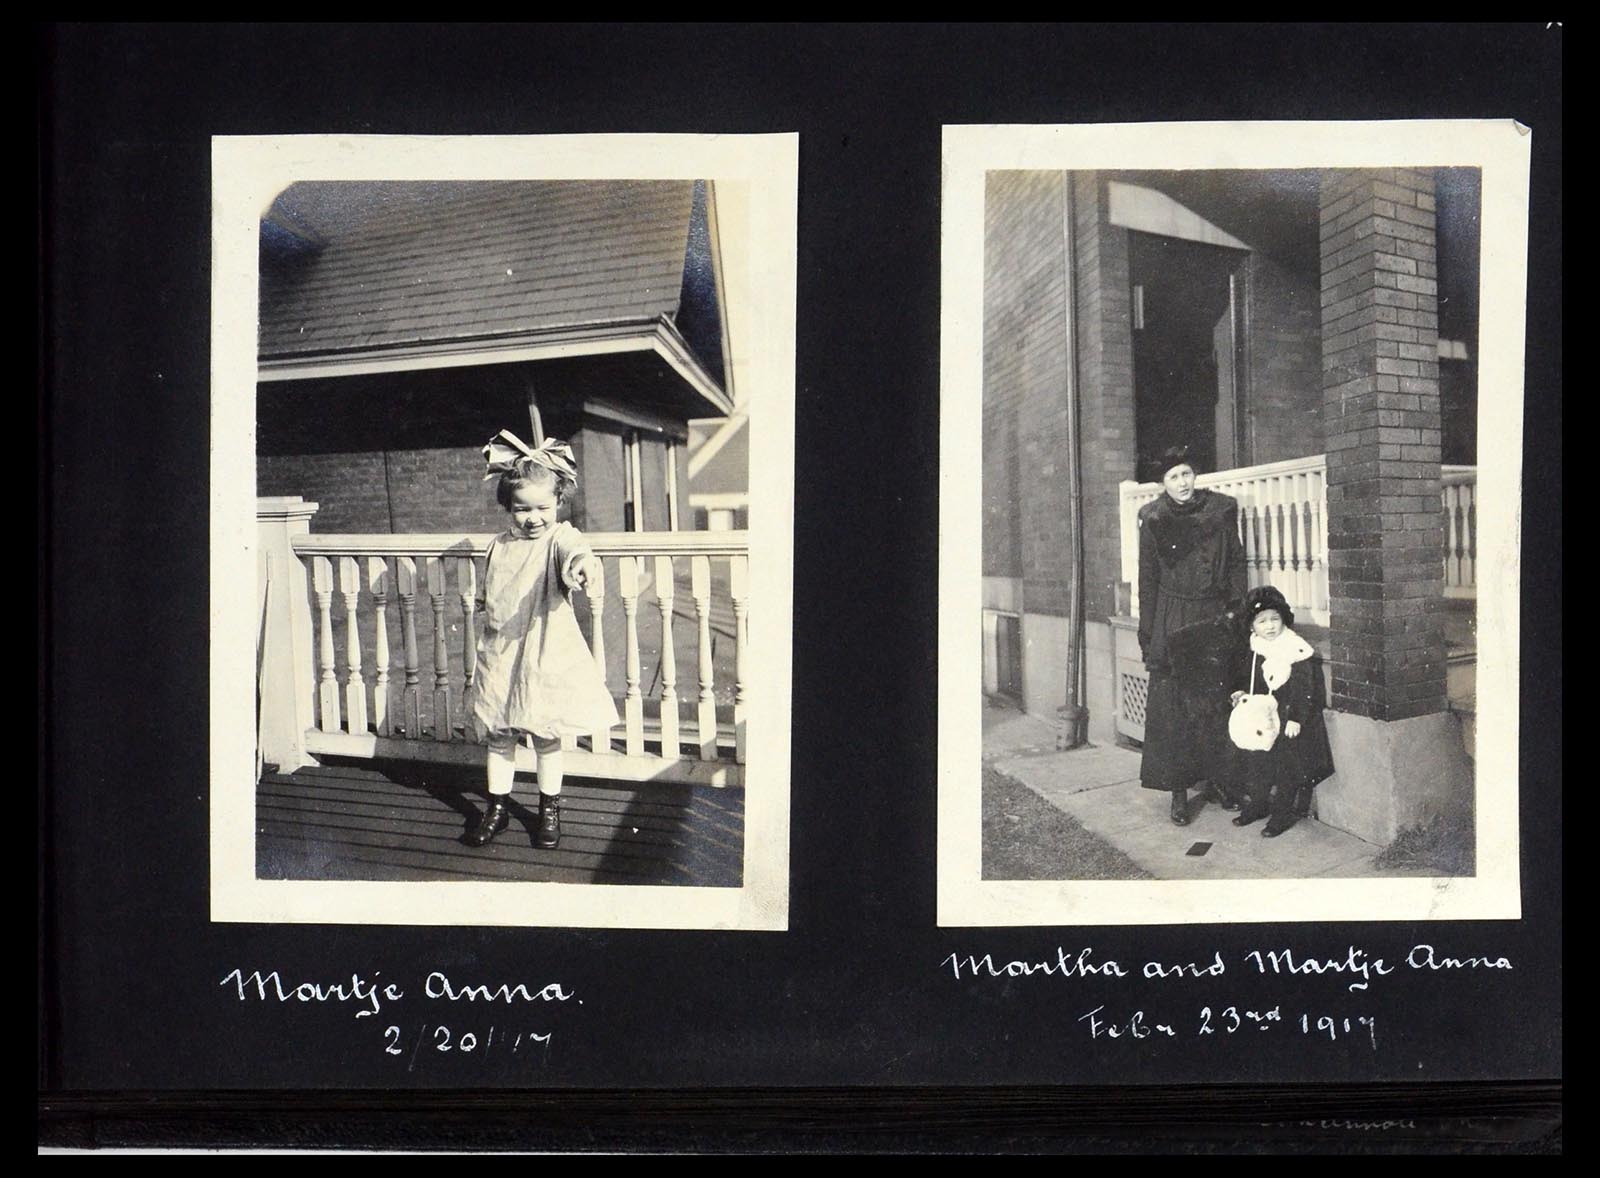 Martje Anna.
2/20/'17
Martha and Martje Anna
Febr 23rd 1917